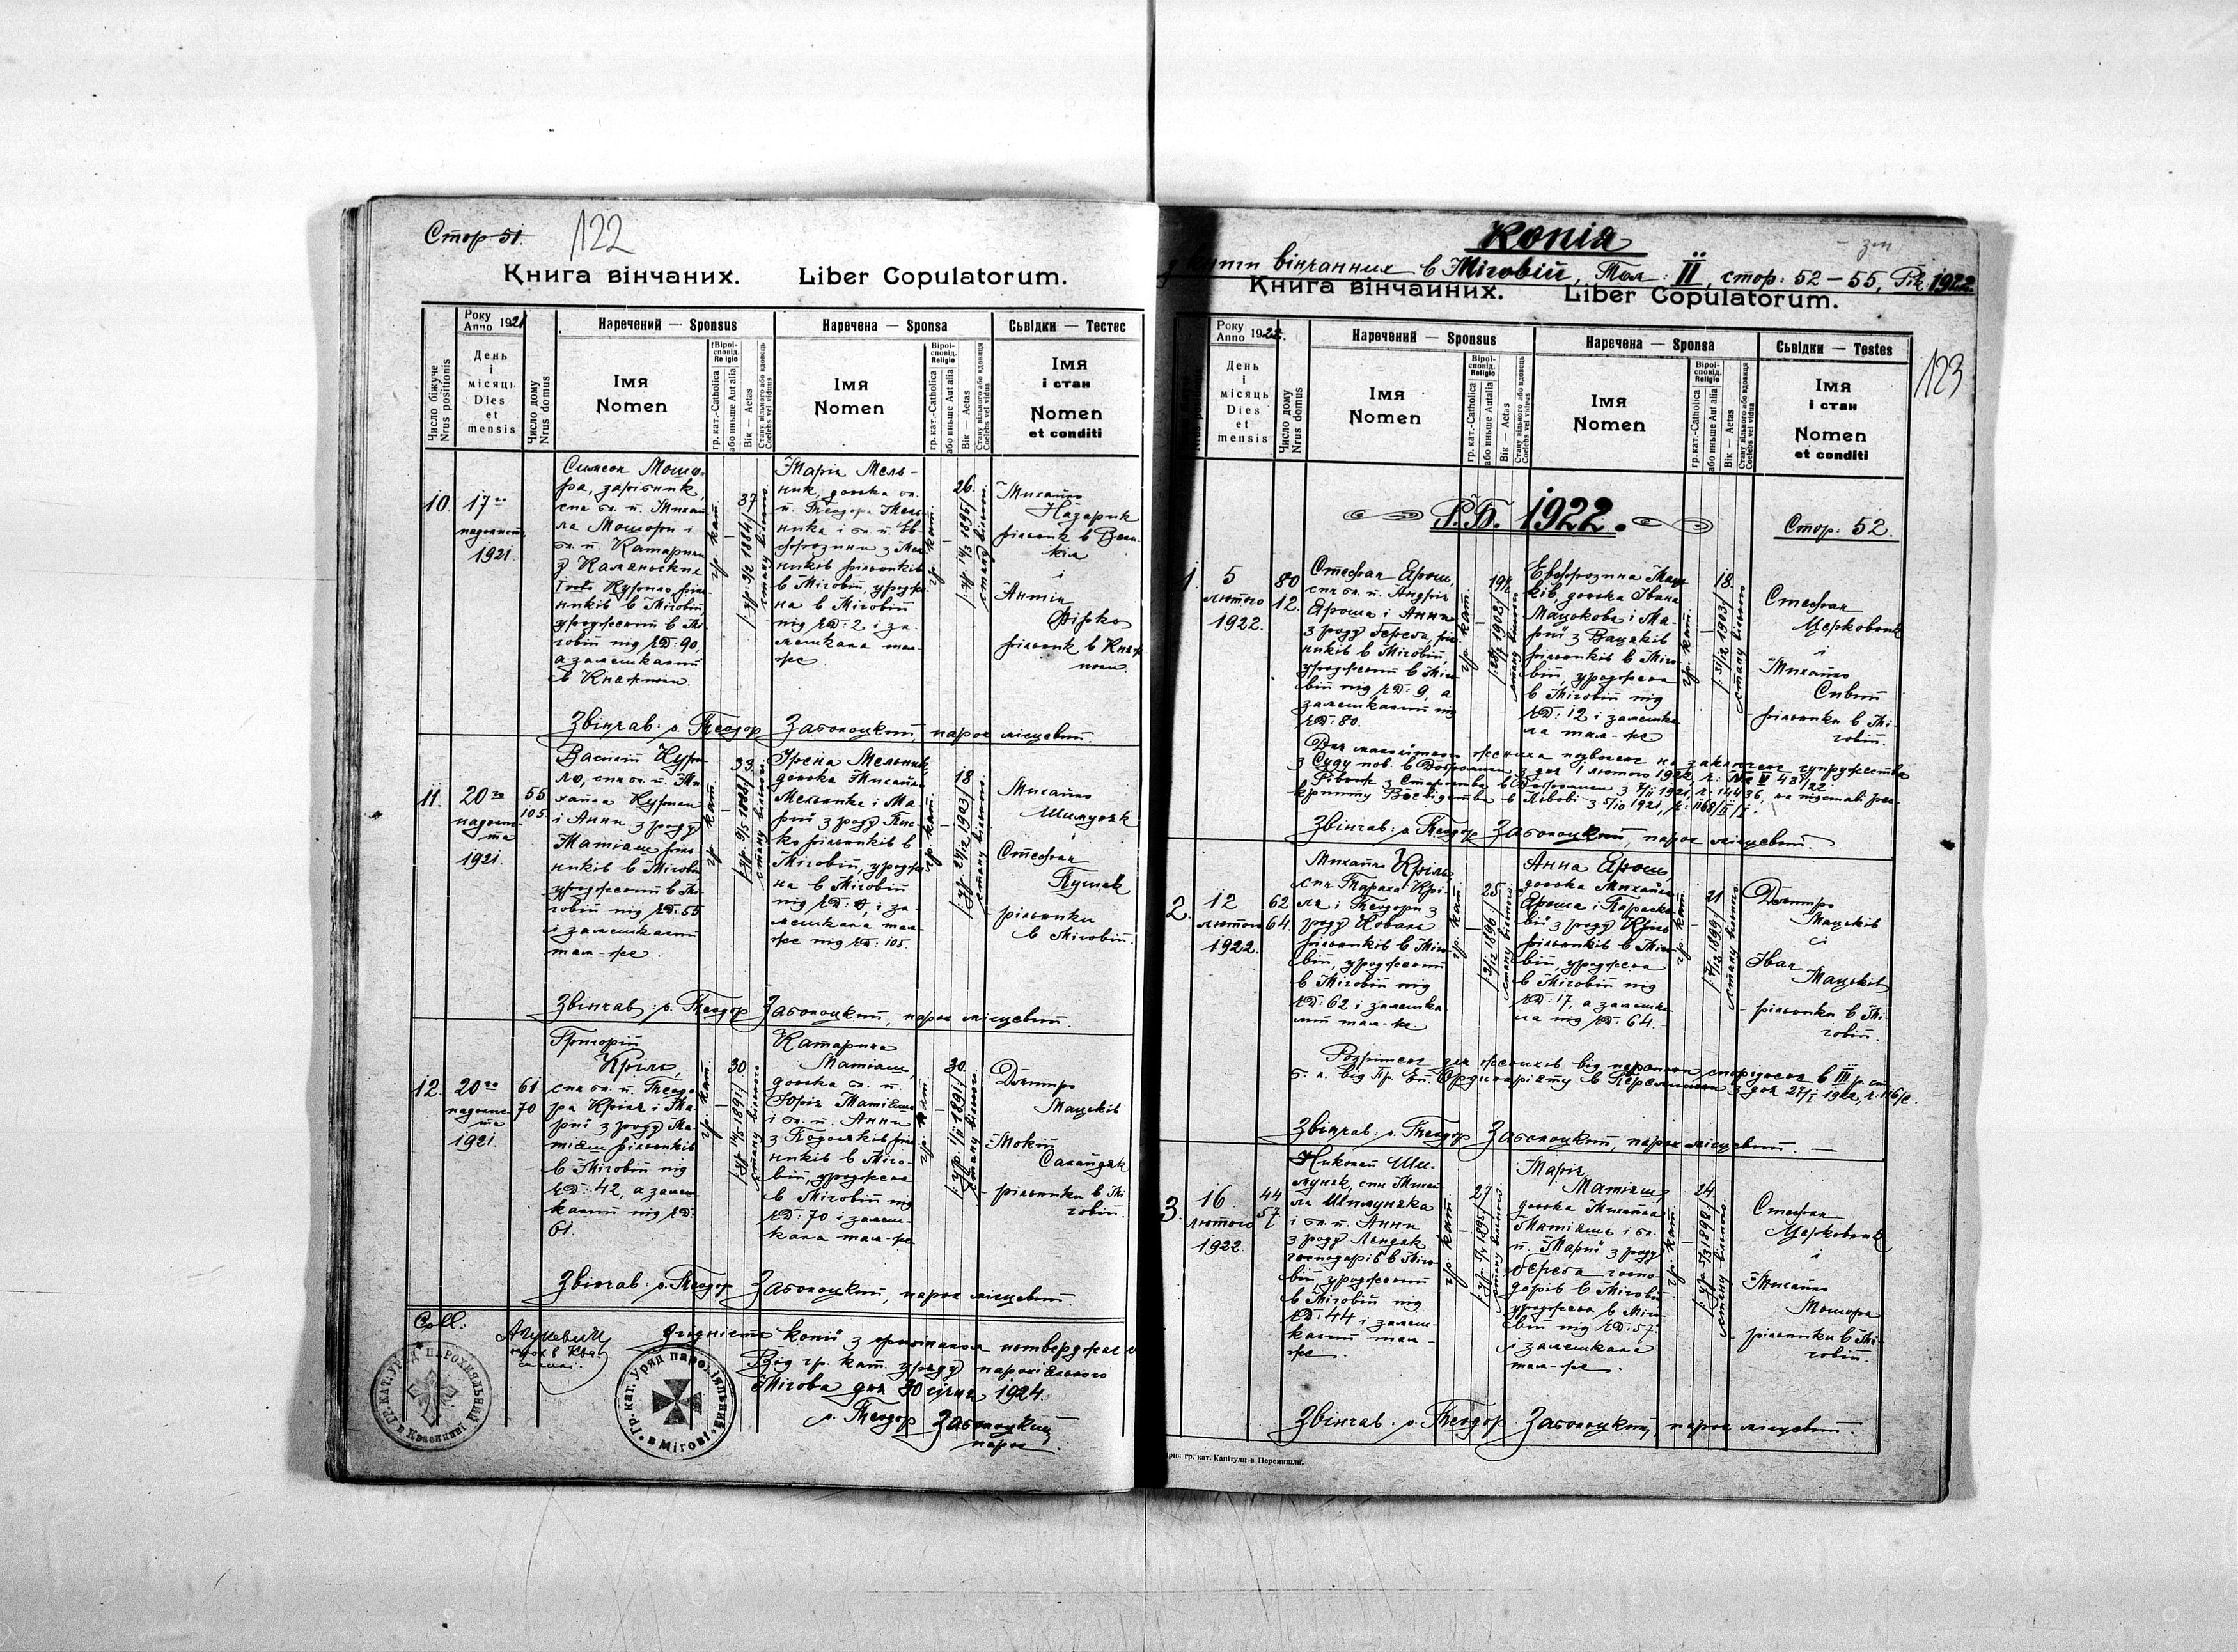 Стор. 51.
122
Книга вінчаних. Liber Copulatorum.
Число біжуче
Nrus positionis
Року
Anno 1921
День
і
місяць
Dies
et
mensis
Число дому
Nrus domus
Наречений — Sponsus
ІМЯ
Nomen
Віроі-
сповід.
Religio
гр. кат.-Catholica
або иньше Aut alia
Вік — Aetas
Стану вільного або вдовець
Coelebs vel viduus
Наречена — Sponsa
ІМЯ
Nomen
Віроі-
сповід.
Religio
гр. кат.-Catholica
або иньше Aut alia
Вік — Aetas
Стану вільного або вдовиця
Coelebs vel vidua
Сьвідки — Тестес
ІМЯ
і стан
Nomen
et conditi
10.
17го
падолиста
1921.
Симеон Мошо-
ра, зарібник,
син бл. п. Михай-
ла Мошори і
бл. п. Катарини
в Міговій
уроджений в Мі-
говій під чД: 90,
а замешкалий
в Княжполи.
гр. кат.
37
/ ур. 3/2 1884/
стану вільного
Марія Мель-
ник, донька бл.
п. Теодора Мель-
ника і бл. п. Ев-
фрозини з Мель-
ників рільників
в Міговій, уродже-
на в Міговій
під чД: 2 і за-
мешкала там-
же
гр. кат.
26.
/ ур. 14/3 1895/
стану вільного
Михайло
Назарик
рільник в Вели-
кім
і
Антін
Фірко
рільник в Княж-
поли.
Звінчав: о. Теодор Заболоцкий, парох місцевий.
11.
20го
падолис-
та
1921.
55.
105.
Василий Кури-
ло, син бл. п. Ми-
хайла Курила
і Анни з роду
Матіяш рільни-
ників в Міговій
уродженний в Мі-
говій під чД: 55
і замешкалий
там-же.
гр. кат.
33.
/ ур. 9/5 1888/
стану вільного
Ірена Мельник,
донька Михайла
Мельника і Ма-
рії з роду
рільників в
Міговій, уродже-
на в Міговій
і за-
мешкала там-
же під чД: 105.
гр. кат.
18
/ ур. 24/12 1903/
стану вільного
Михайло
Шимуняк
і
Стефан
Пушак
рільники
в Міговій.
Звінчав: о. Теодор Заболоцкий, парох місцевий.
12.
20го
падолис-
та
1921.
61
70
Григорий
Кріль,
син бл. п. Теодо-
ра Кріля і Ма-
рії з роду Ма-
тіяш рільників
в Міговій під
чД: 42, а замеш-
калий під чД:
61.
гр. кат.
30
/ ур. 14/5 1891/
стану вільного
Катарина
Матіяш,
донька бл. п.
Юрія Матіяша
і бл. п. Анни
з Подоляків рільни-
ників в Міго-
вій, уроджена
в Міговій під
чД: 70 і замеш-
кала там-же
гр. кат.
30.
/ ур. 1/11 1891/
стану вільного
Дмитро
Мацьків
Мокий
Саландяк
рільники в Мі-
говій.
Звінчав: о. Теодор Заболоцкий, парох місцевий.
Coll:
парох в Ква-
сенині.
ГР. КАТ. УРЯД ПАРОХІЯЛЬНИЙ в Квасенині
Гр. кат. Уряд парохіяльний в Міговій
Згідність копії з оригіналом потверджаєся
Від гр. кат. уряду парохіяльного
Мігова дня 30 січня 1924.
о. Теодор Заболоцкий
парох
Копія
з книги вінчанних в Міговій, Том: II, стор: 52 – 55, Рік 1922
Книга вінчанних. Liber Copulatorum.
123
Року
Anno 1922.
День
і
місяць
Dies
et
mensis
Число дому
Nrus domus
Наречений — Sponsus
ІМЯ
Nomen
Віроі-
сповід.
Religio
гр. кат.-Catholica
або иньше Aut alia
Вік — Aetas
Стану вільного або вдовець
Coelebs vel viduus
Наречена — Sponsa
ІМЯ
Nomen
Віроі-
сповід.
Religio
гр. кат.-Catholica
або иньше Aut alia
Вік — Aetas
Стану вільного або вдовиця
Coelebs vel vidua
Сьвідки — Testes
ІМЯ
і стан
Nomen
et conditi
Р.Б. 1922.
Стор: 52.
1.
5
лютого
1922.
80
12.
Стефан Ярош,
син бл. п. Андрія
Яроша і Анни
з роду Береза, рільни-
ників в Міговій,
уроджений в Міго-
вій під чД: 9, а
замешкалий під
чД: 80.
гр. кат.
19½
1902/
стану вільного
Евфрозина Маць-
ків, донька Івана
Мацькова і Ма-
рії з Вацяків
рільників в Міго-
вій, уроджена
в Міговій під
чД: 12 і замешка-
ла там-же
гр. кат.
18.
/ 31/12 1903/
стану вільного
Стефан
Церковник
і
Михайло
Сивий
рільники в Мі-
говій.
Для малолітного жениха позволенє на заключенє супружества
з Суду пов. в Добромили з дня 1 лютого 1922 ч: Nc II 43/22
Звінчав: о. Теодор Заболоцкий, парох місцевий.
2.
12
лютого
1922.
62
64.
Михайло Кріль,
син Тараса Крі-
ля і Теодори з
роду Коваль
рільників в Міго-
вій, уроджений
в Міговій під
чД: 62 і замешка-
лий там-же.
гр. кат.
25
/ 2/12 1896/
стану вільного
Анна Ярош,
донька Михайла
Яроша і Параске-
вії з роду Кріль
рільників в Міго-
вій уроджена
в Міговій під
чД: 17, а замешка-
ла під чД: 64.
гр. кат.
21
1899/
стану вільного
Дмитро
Мацьків
і
Іван
Мацьків
рільники в Мі-
говій.
Звінчав: о. Теодор Заболоцкий, парох місцевий.
3.
16
лютого
1922.
44
57
Николай Ши-
муняк, син Михай-
ла Шимуняка
і бл. п. Анни
з роду Лендяк
господарів в Міго-
вій, уроджений
в Міговій під
чД: 44 і замеш-
калий там-
же
гр. кат.
27
1895/
стану вільного
Марія
Матіяш,
донька Михайла
Матіяша і бл.
п. Марії з роду
Береза госпо-
дарів в Міговій
уроджена в Міго-
вій під чД: 57.
і замешкала
там-же.
гр. кат.
24.
/ ур 5/3 1898/
стану вільного
Стефан
Церковник
і
Михайло
Мошора
рільники в Мі-
говій.
Звінчав: о. Теодор Заболоцкий, парох місцевий.
гр. кат. Капітули в Перемишли.